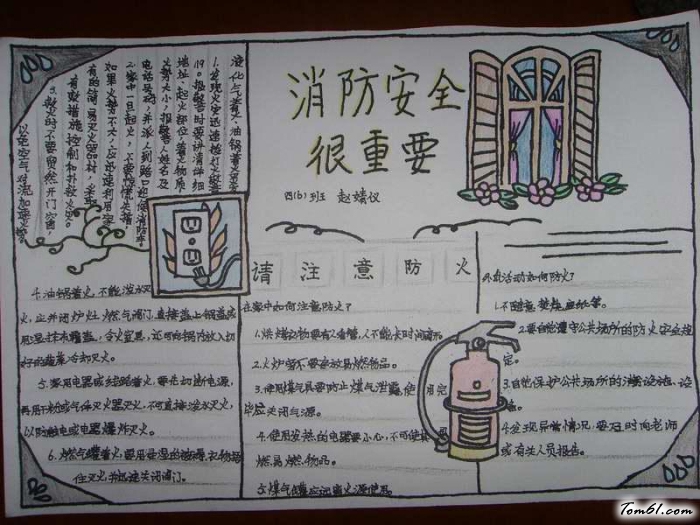 消防安全
很重要
四(6)班 赵婧仪
1.发现火灾迅速拨打火警
119。报警时要讲清详细
地址、起火部位、着火物质、
火势大小、报警人姓名及
电话号码,并派人到路口迎候消防车
2.家中一旦起火,
如果火势不大,应迅速利用家
有的简易灭火器材,采取
有效措施控制和扑救火灾。
3.救火时不要贸然开门窗,
以免空气对流加速火势
4.油锅着火,不能泼水灭
火,应关闭炉灶燃气阀门,直接盖上锅盖或
用湿抹布覆盖,令火窒息,还可向锅内放入切
好的蔬菜冷却灭火。
5.家用电器或线路着火,要先切断电源,
再用干粉或气体灭火器灭火,不可直接泼水灭火,
以防触电或电器爆炸灭火。
6.燃气罐着火,要用浸湿的被褥、衣物捂
住灭火,并迅速关闭阀门。
请注意防火
在家中如何注意防火?
1.烘烤衣物要有人看管,人不能长时间离开。
2.火炉旁不要存放易燃物品。
3.使用煤气具要防止煤气泄露,使用完
毕应关闭气源。
4.使用发热的电器要小心,不可使其
燃易燃物品。
5.煤气罐应远离火源使用。
外出活动如何防火?
1.不随意焚烧废纸等。
2.要自觉遵守公共场所的防火安全规
定。
3.自觉保护公共场所的消防设施、设
4.发现异常情况,要及时向老师
或有关人员报告。
Tom61.com